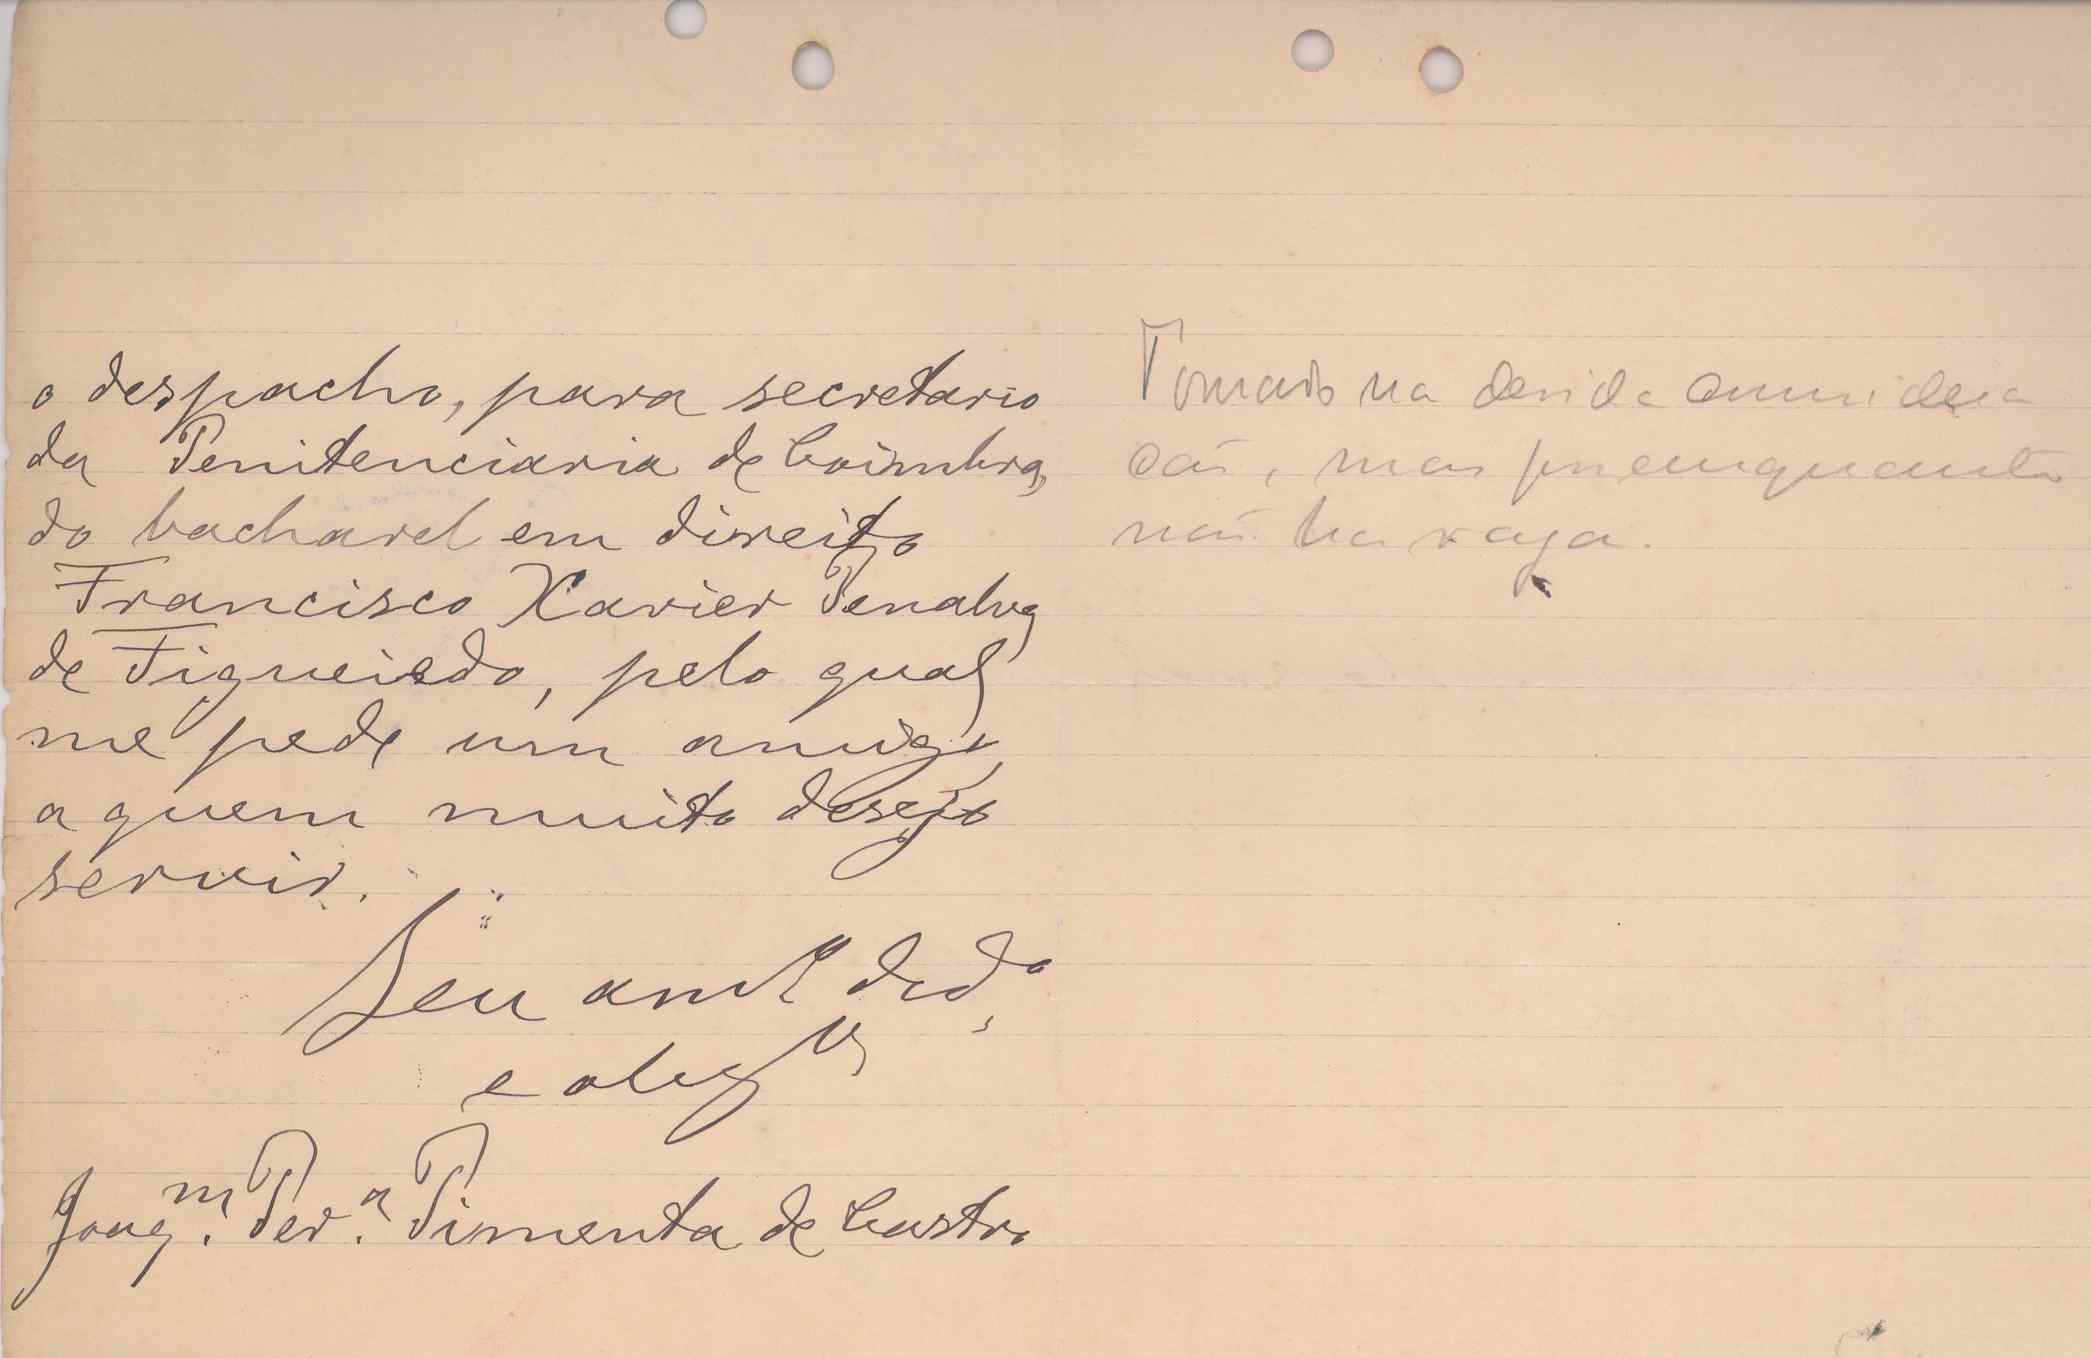 o despacho, para secretario
da Penitenciaria de Coimbra,
do bacharel em direito
Francisco Xavier Penalva
de Figueiredo, pelo qual
me pede um amigo
a quem muito desejo
servir.
Seu amº dedº
e obgº
Joaqm. Per.a Pimenta de Castro
Tomado na devida considera
ção, mas por emquanto
não ha vaga.